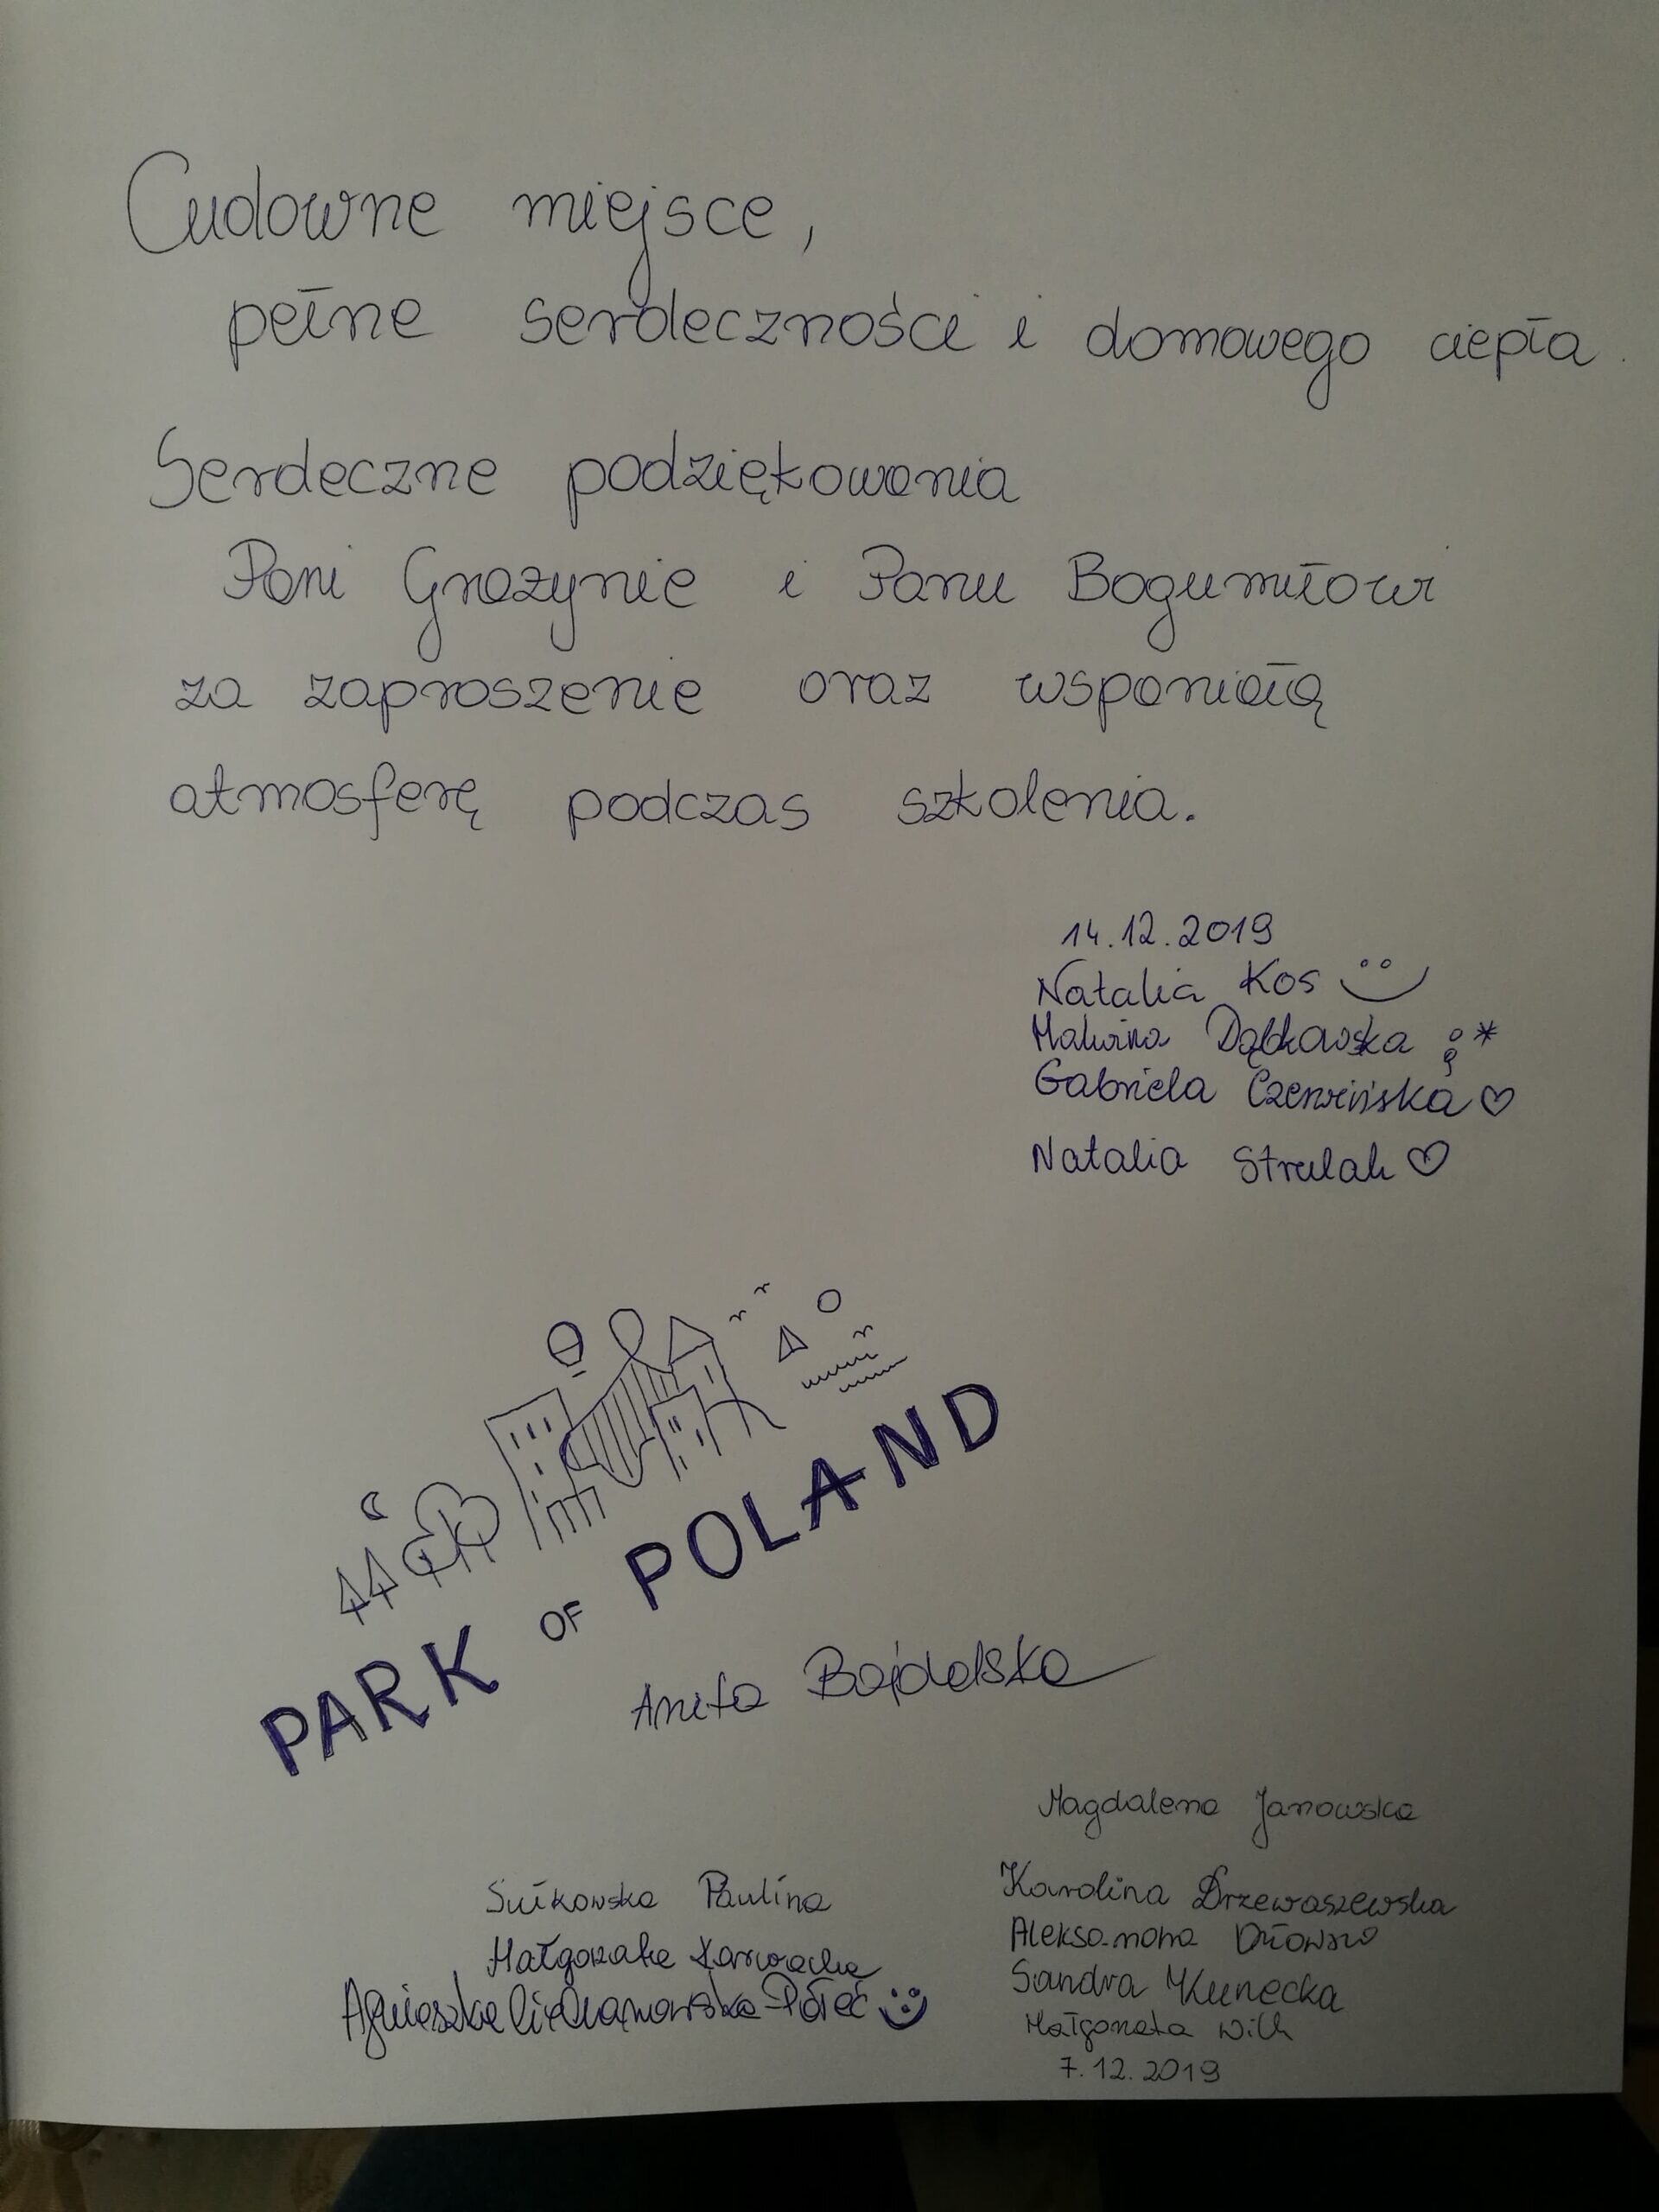 Cudowne miejsce,
pełne serdeczności i domowego ciepła.
Serdeczne podziękowania
Pani Grażynie i Panu Bogumiłowi
za zaproszenie oraz wspaniałą
atmosferę podczas szkolenia.
14.12.2019
Natalia Kos
Malwina Dąbkowska ;*
Gabriela Czerwińska ♡
Natalia Strulak ♡
PARK OF POLAND
Anita Bajdelska
Magdalena Janowska
Sulkowska Paulina
Małgorzata Karwacka
Agnieszka
Karolina Drzewaszewska
Aleksandra
Sandra Kunecka
Małgorzata Wilk
7.12.2019